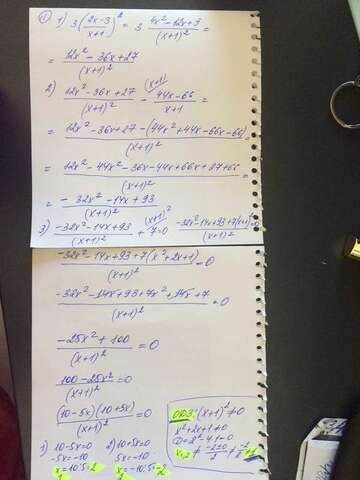 ① 1) 3(2x-3/x+1)² = 3 4x²-12x+9/(x+1)² =
= 12x²-36x+27/(x+1)²
2) 12x²-36x+27/(x+1)² - (x+1) 44x-66/x+1 =
= 12x²-36x+27-(44x²+44x-66x-66)/(x+1)² =
= 12x²-44x²-36x-44x+66x+27+66/(x+1)² =
= -32x²-14x+93/(x+1)²
3) -32x²-14x+93/(x+1)² + (x+1)² 7=0 -32x²-14x+93+7(x+1)²/(x+1)² =0
-32x²-14x+93+7(x²+2x+1)/(x+1)² =0
-32x²-14x+93+7x²+14x+7/(x+1)² =0
-25x²+100/(x+1)² =0
100-25x²/(x+1)² =0
(10-5x)(10+5x)/(x+1)² =0
1) 10-5x=0 2) 10+5x=0
-5x=-10 5x=-10
x=10:5=2 x=-10:5=-2
ОДЗ: (x+1)²≠0
x²+2x+1≠0
D=2²-4·1=0